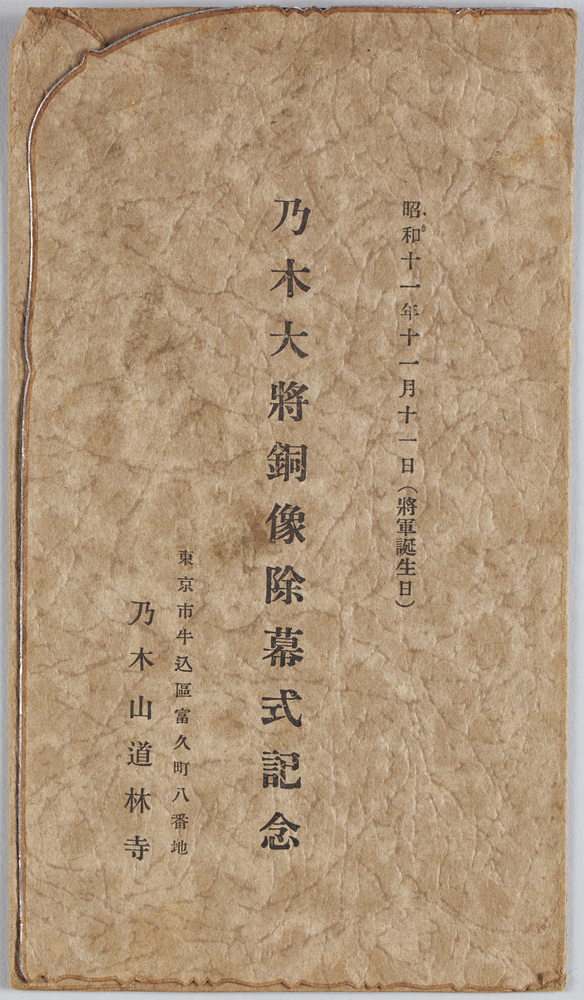 昭和十一年十一月十一日（將軍誕生日）
乃木大將銅像除幕式記念
東京市牛込區富久町八番地
乃木山道林寺